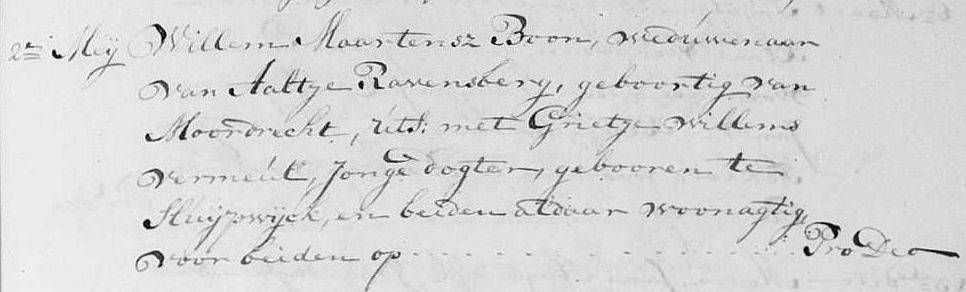 2en Meij Willem Maartensz Boon, weduwenaar
van Aaltje Ravensberg, geboortig van
Moordrecht, uts: met Grietje Willems
Vermeul, Jonge dogter, gebooren te
Sluijpwijck, en beiden aldaar woonagtig,
voor beiden op . . . . . . . . . . . . . . . . Pro Deo